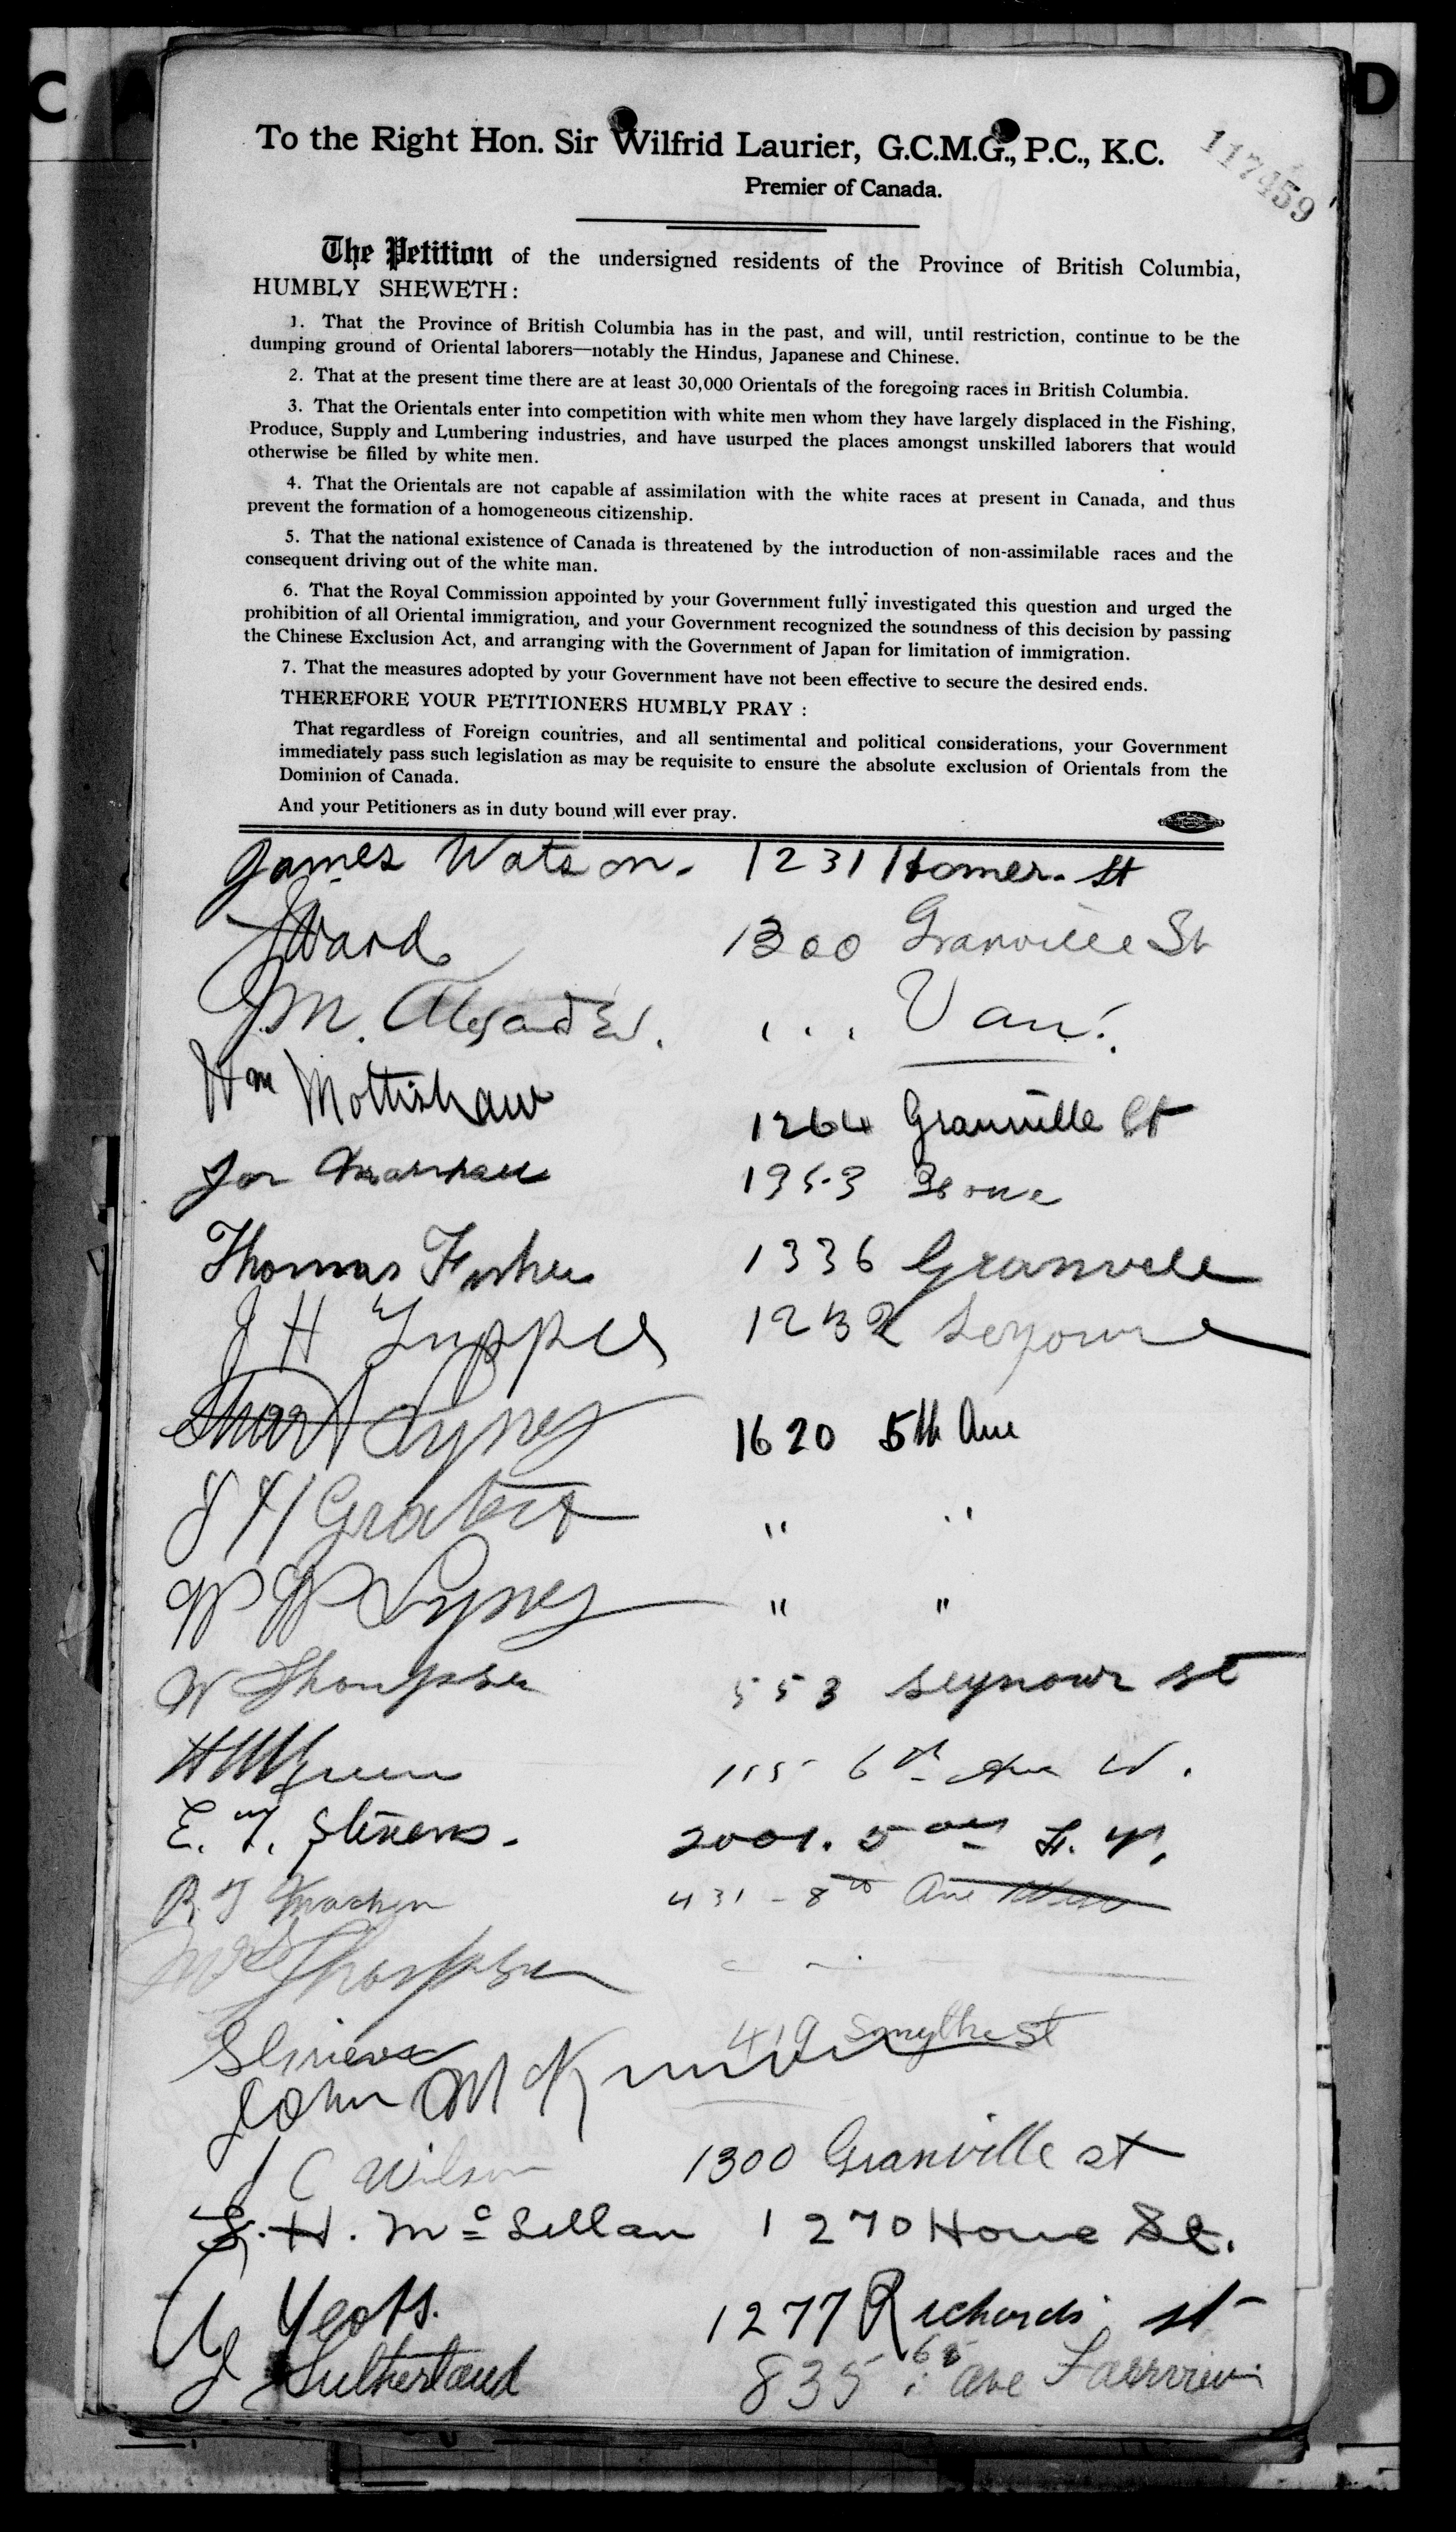 C A D
To the Right Hon. Sir Wilfrid Laurier, G.C.M.G., P.C., K.C.
117459
Premier of Canada.
The Petition of the undersigned residents of the Province of British Columbia,
HUMBLY SHEWETH:
1. That the Province of British Columbia has in the past, and will, until restriction, continue to be the
dumping ground of Oriental laborers—notably the Hindus, Japanese and Chinese.
2. That at the present time there are at least 30,000 Orientals of the foregoing races in British Columbia.
3. That the Orientals enter into competition with white men whom they have largely displaced in the Fishing,
Produce, Supply and Lumbering industries, and have usurped the places amongst unskilled laborers that would
otherwise be filled by white men.
4. That the Orientals are not capable af assimilation with the white races at present in Canada, and thus
prevent the formation of a homogeneous citizenship.
5. That the national existence of Canada is threatened by the introduction of non-assimilable races and the
consequent driving out of the white man.
6. That the Royal Commission appointed by your Government fully investigated this question and urged the
prohibition of all Oriental immigration, and your Government recognized the soundness of this decision by passing
the Chinese Exclusion Act, and arranging with the Government of Japan for limitation of immigration.
7. That the measures adopted by your Government have not been effective to secure the desired ends.
THEREFORE YOUR PETITIONERS HUMBLY PRAY :
That regardless of Foreign countries, and all sentimental and political considerations, your Government
immediately pass such legislation as may be requisite to ensure the absolute exclusion of Orientals from the
Dominion of Canada.
And your Petitioners as in duty bound will ever pray.
James Watson. 1231 Homer. St
J Ward 1300 Granville St
J.M. Alexander. , , , Van.
Wm Mottishaw 1264 Granville St
Marshall
Thomas Fisher 1336 Granvele
J H 1232 Seymour
Lynes 1620 5th Ave
J H " "
W W Lynes " "
W Thompson 553 Seymour st
Green 155 6th Ave W.
E. T. Stevens. 2001. 5
R. T Machin 431 - 8th Ave
Mrs Thompson
419 Smythe St
John
J C Wilson 1300 Granville st
H. Mc Lellan 1270 Howe St.
Yeats. 1277 Richards st
J Sutherland 835 6th Ave Fairview